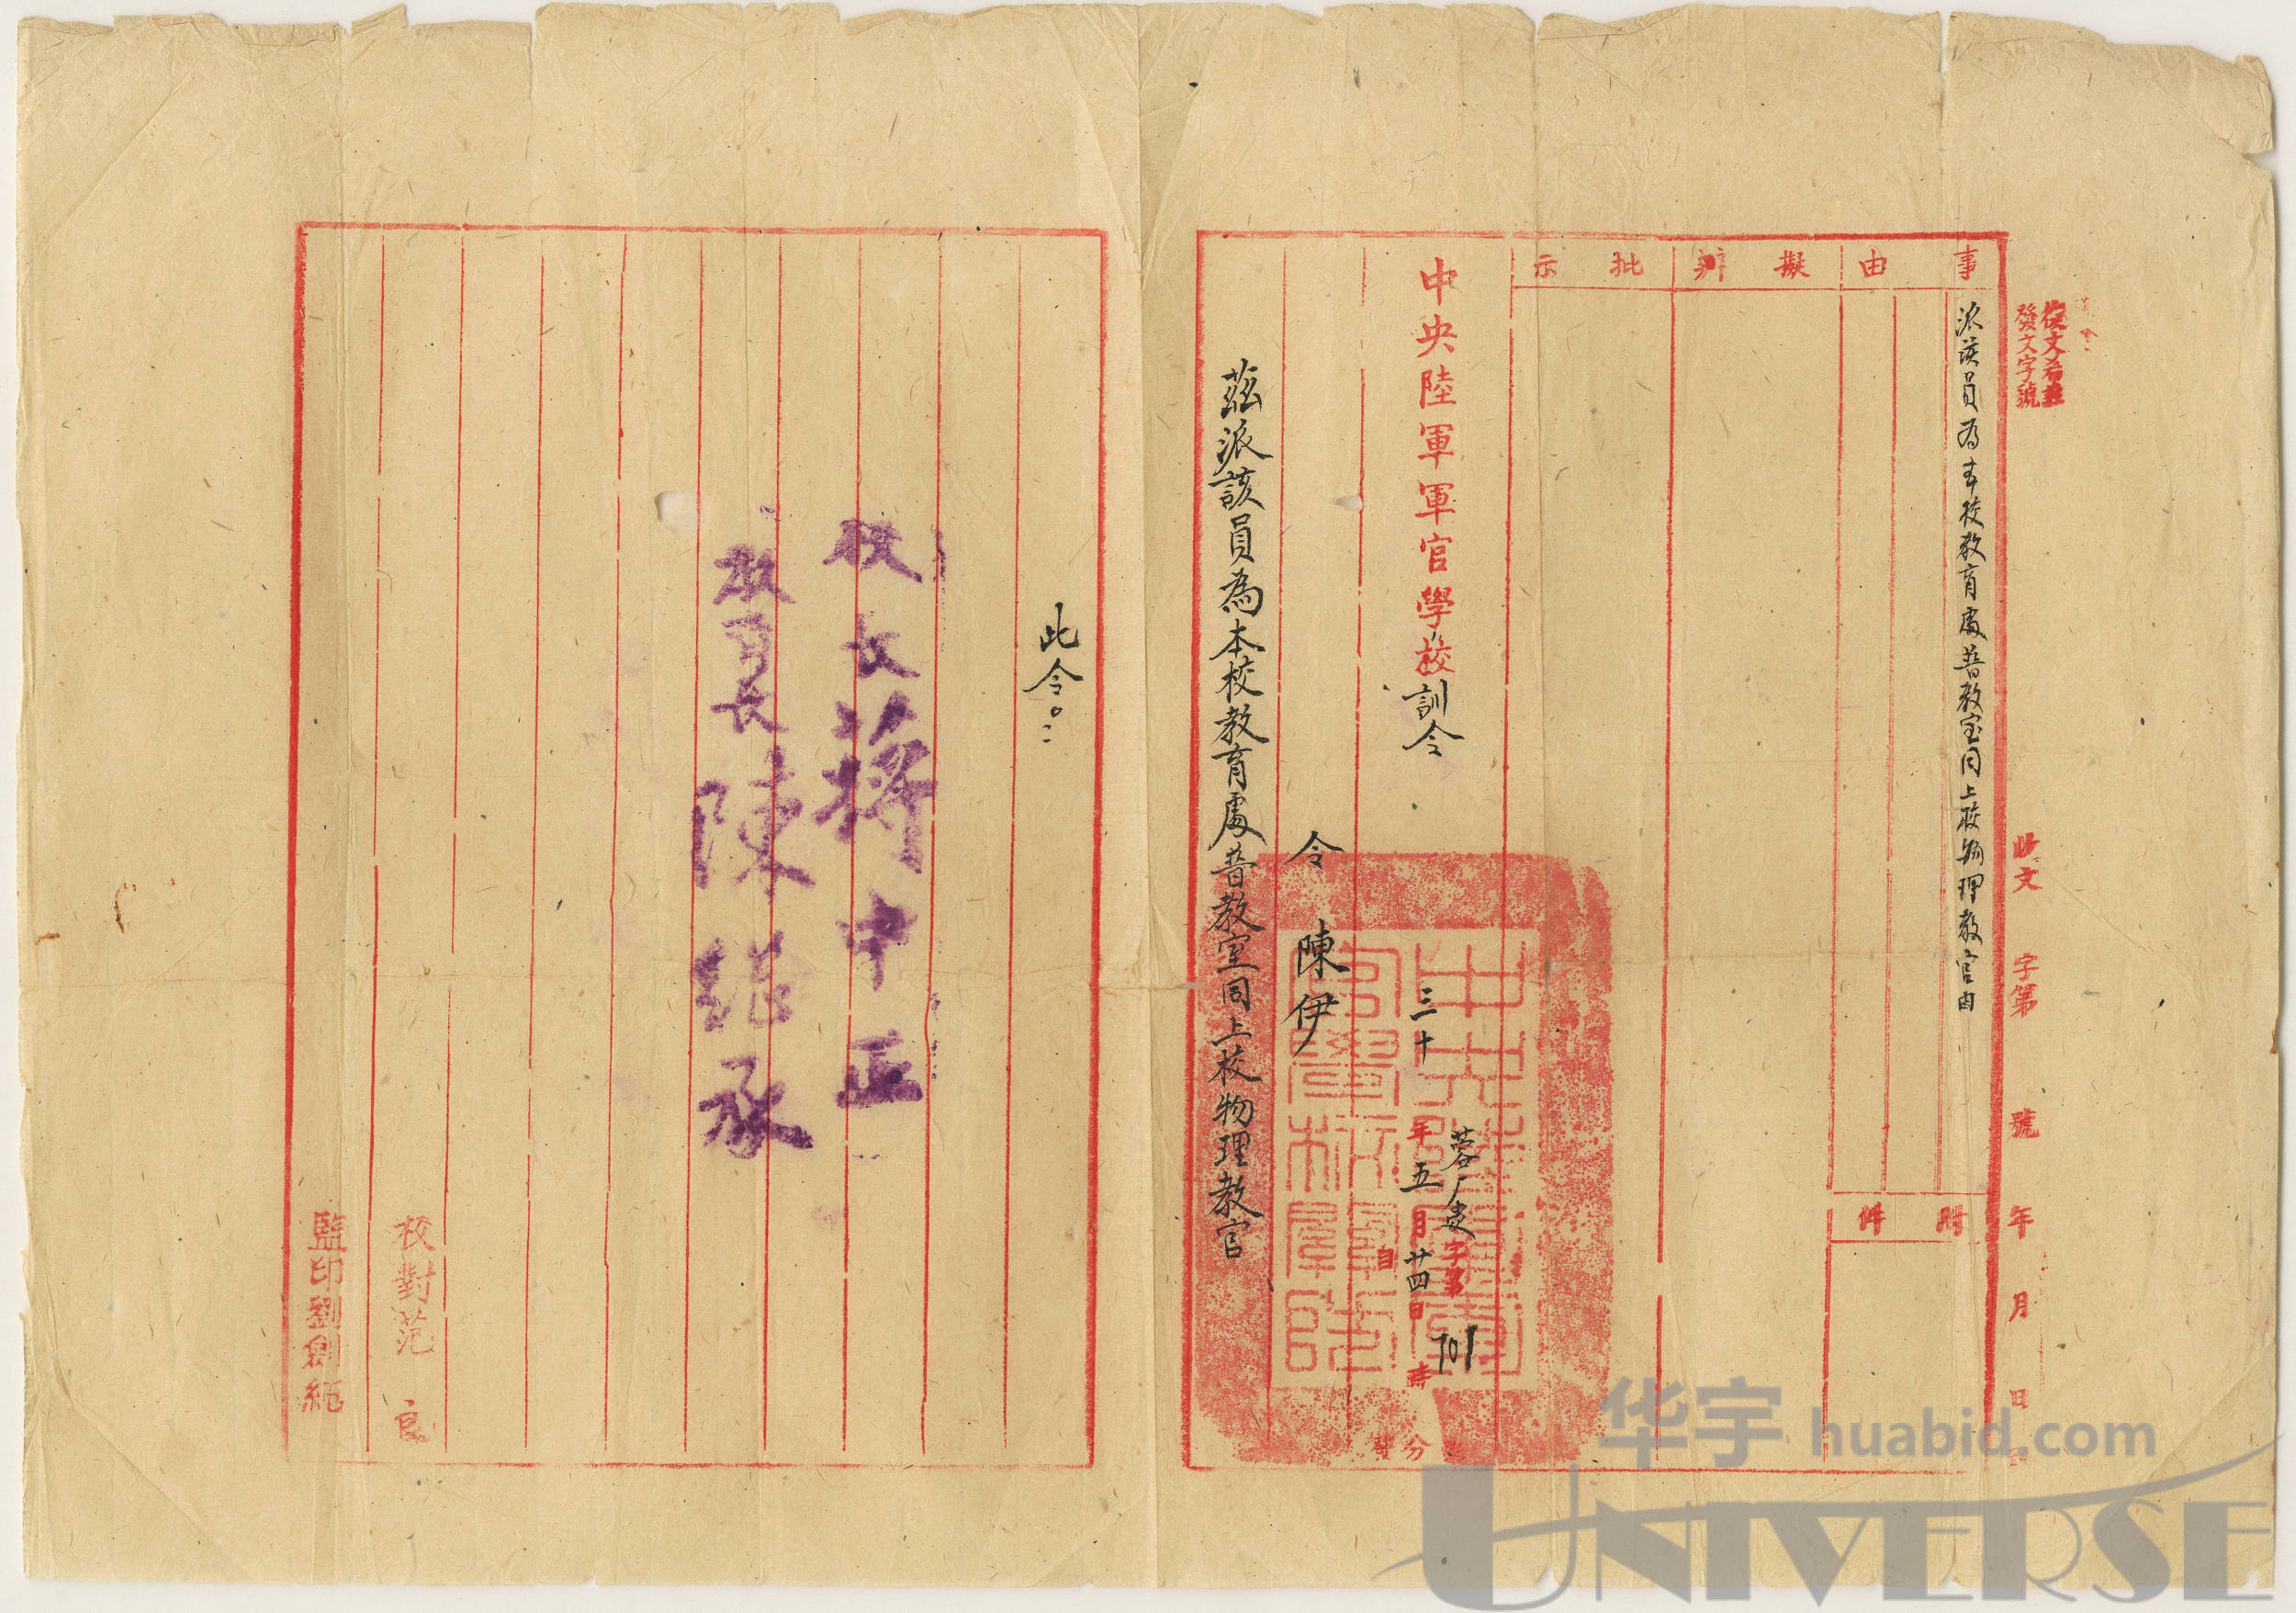 復文希註
發文字號
收文 字第 號 年 月 日
事由
派該員為本校教育處普教室同上校物理教官由
附件
擬辦
批示
中央陸軍軍官學校訓令
蓉 字第701
三十年五月廿四日 時
令 陳伊
茲派該員為本校教育處普教室同上校物理教官
此令。
校長 蔣中正
教育長 陳繼承
校對 范 良
監印 劉劍
华宇 huabid.com
UNIVERSE